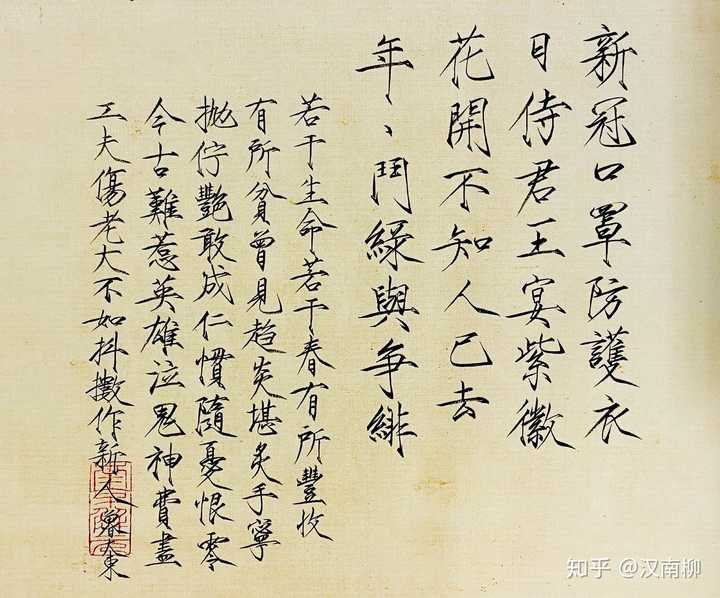 新冠口罩防護衣
日侍君王宴紫徽
花開不知人已去
年〻鬥綠與爭緋
若干生命若干春有所豐收
有所貧曾見趋炎堪炙手寧
拋佇艷敢成仁慣隨憂恨零
今古難惹英雄泣鬼神費盡
工夫傷老大不如抖擻作新人
知乎 @汉南柳